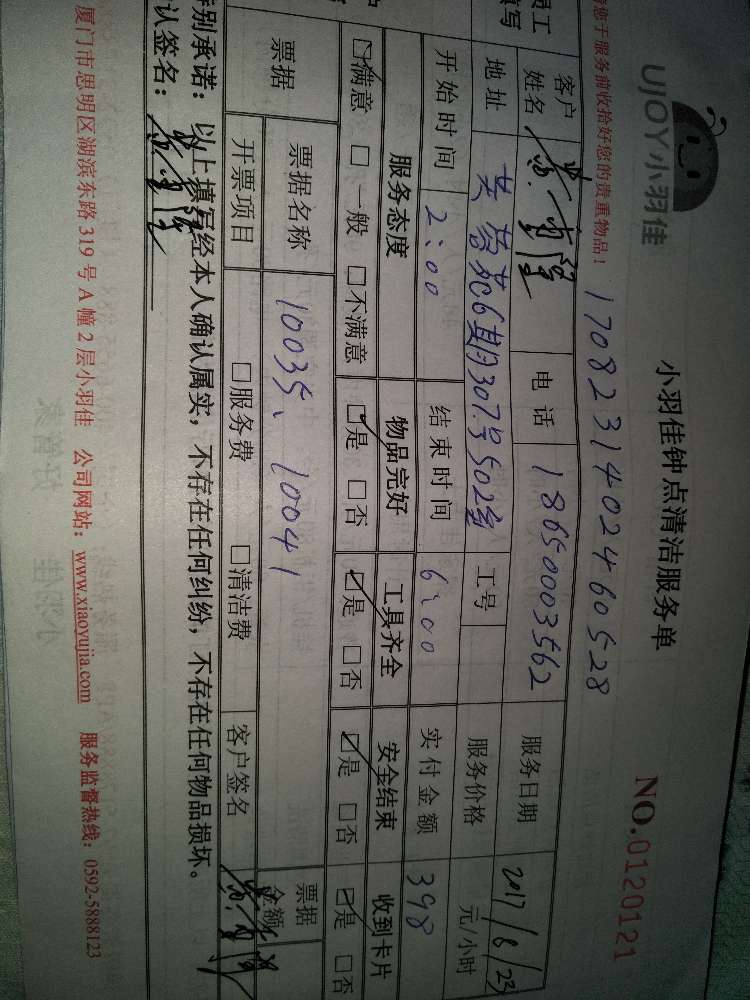 UJOY小羽佳
小羽佳钟点清洁服务单
NO.0120121
您于服务前收拾好您的贵重物品！
17082314024 60528
客户姓名 电话 18650003562 服务日期 2017/8/23
地址 芙蓉苑6期307号502室 工号 服务价格 元/小时
开始时间 2:00 结束时间 6:00 实付金额 398
服务态度 物品完好 工具齐全 安全结束 收到卡片
☑满意 □一般 □不满意 ☑是 □否 ☑是 □否 ☑是 □否 ☑是 □否
票据 票据名称 10035、10041 票据金额
开票项目 □服务费 □清洁费 客户签名
特别承诺：以上填写经本人确认属实，不存在任何纠纷，不存在任何物品损坏。
认签名：
厦门市思明区湖滨东路319号A幢2层小羽佳 公司网站：www.xiaoyujia.com 服务监督热线：0592-5888123
员工
填写